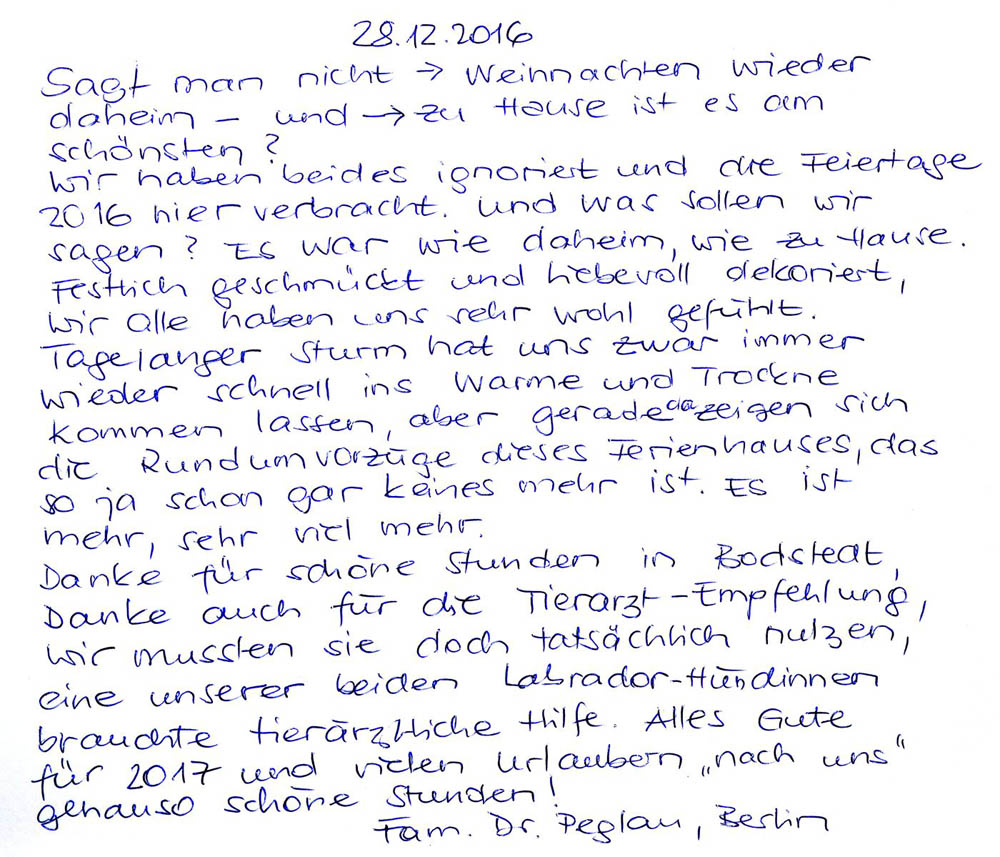 28.12.2016
Sagt man nicht → Weihnachten wieder
daheim – und → zu Hause ist es am
schönsten?
Wir haben beides ignoriert und die Feiertage
2016 hier verbracht. Und was sollen wir
sagen? Es war wie daheim, wie zu Hause.
Festlich geschmückt und liebevoll dekoriert,
wir alle haben uns sehr wohl gefühlt.
Tagelanger Sturm hat uns zwar immer
wieder schnell ins Warme und Trockne
kommen lassen, aber gerade da zeigen sich
die Rundumvorzüge dieses Ferienhauses, das
so ja schon gar keines mehr ist. Es ist
mehr, sehr viel mehr.
Danke für schöne Stunden in Bodstedt,
Danke auch für die Tierarzt-Empfehlung,
wir mussten sie doch tatsächlich nutzen,
eine unserer beiden Labrador-Hündinnen
brauchte tierärztliche Hilfe. Alles Gute
für 2017 und vielen Urlaubern „nach uns“
genauso schöne Stunden!
Fam. Dr. Peglau, Berlin